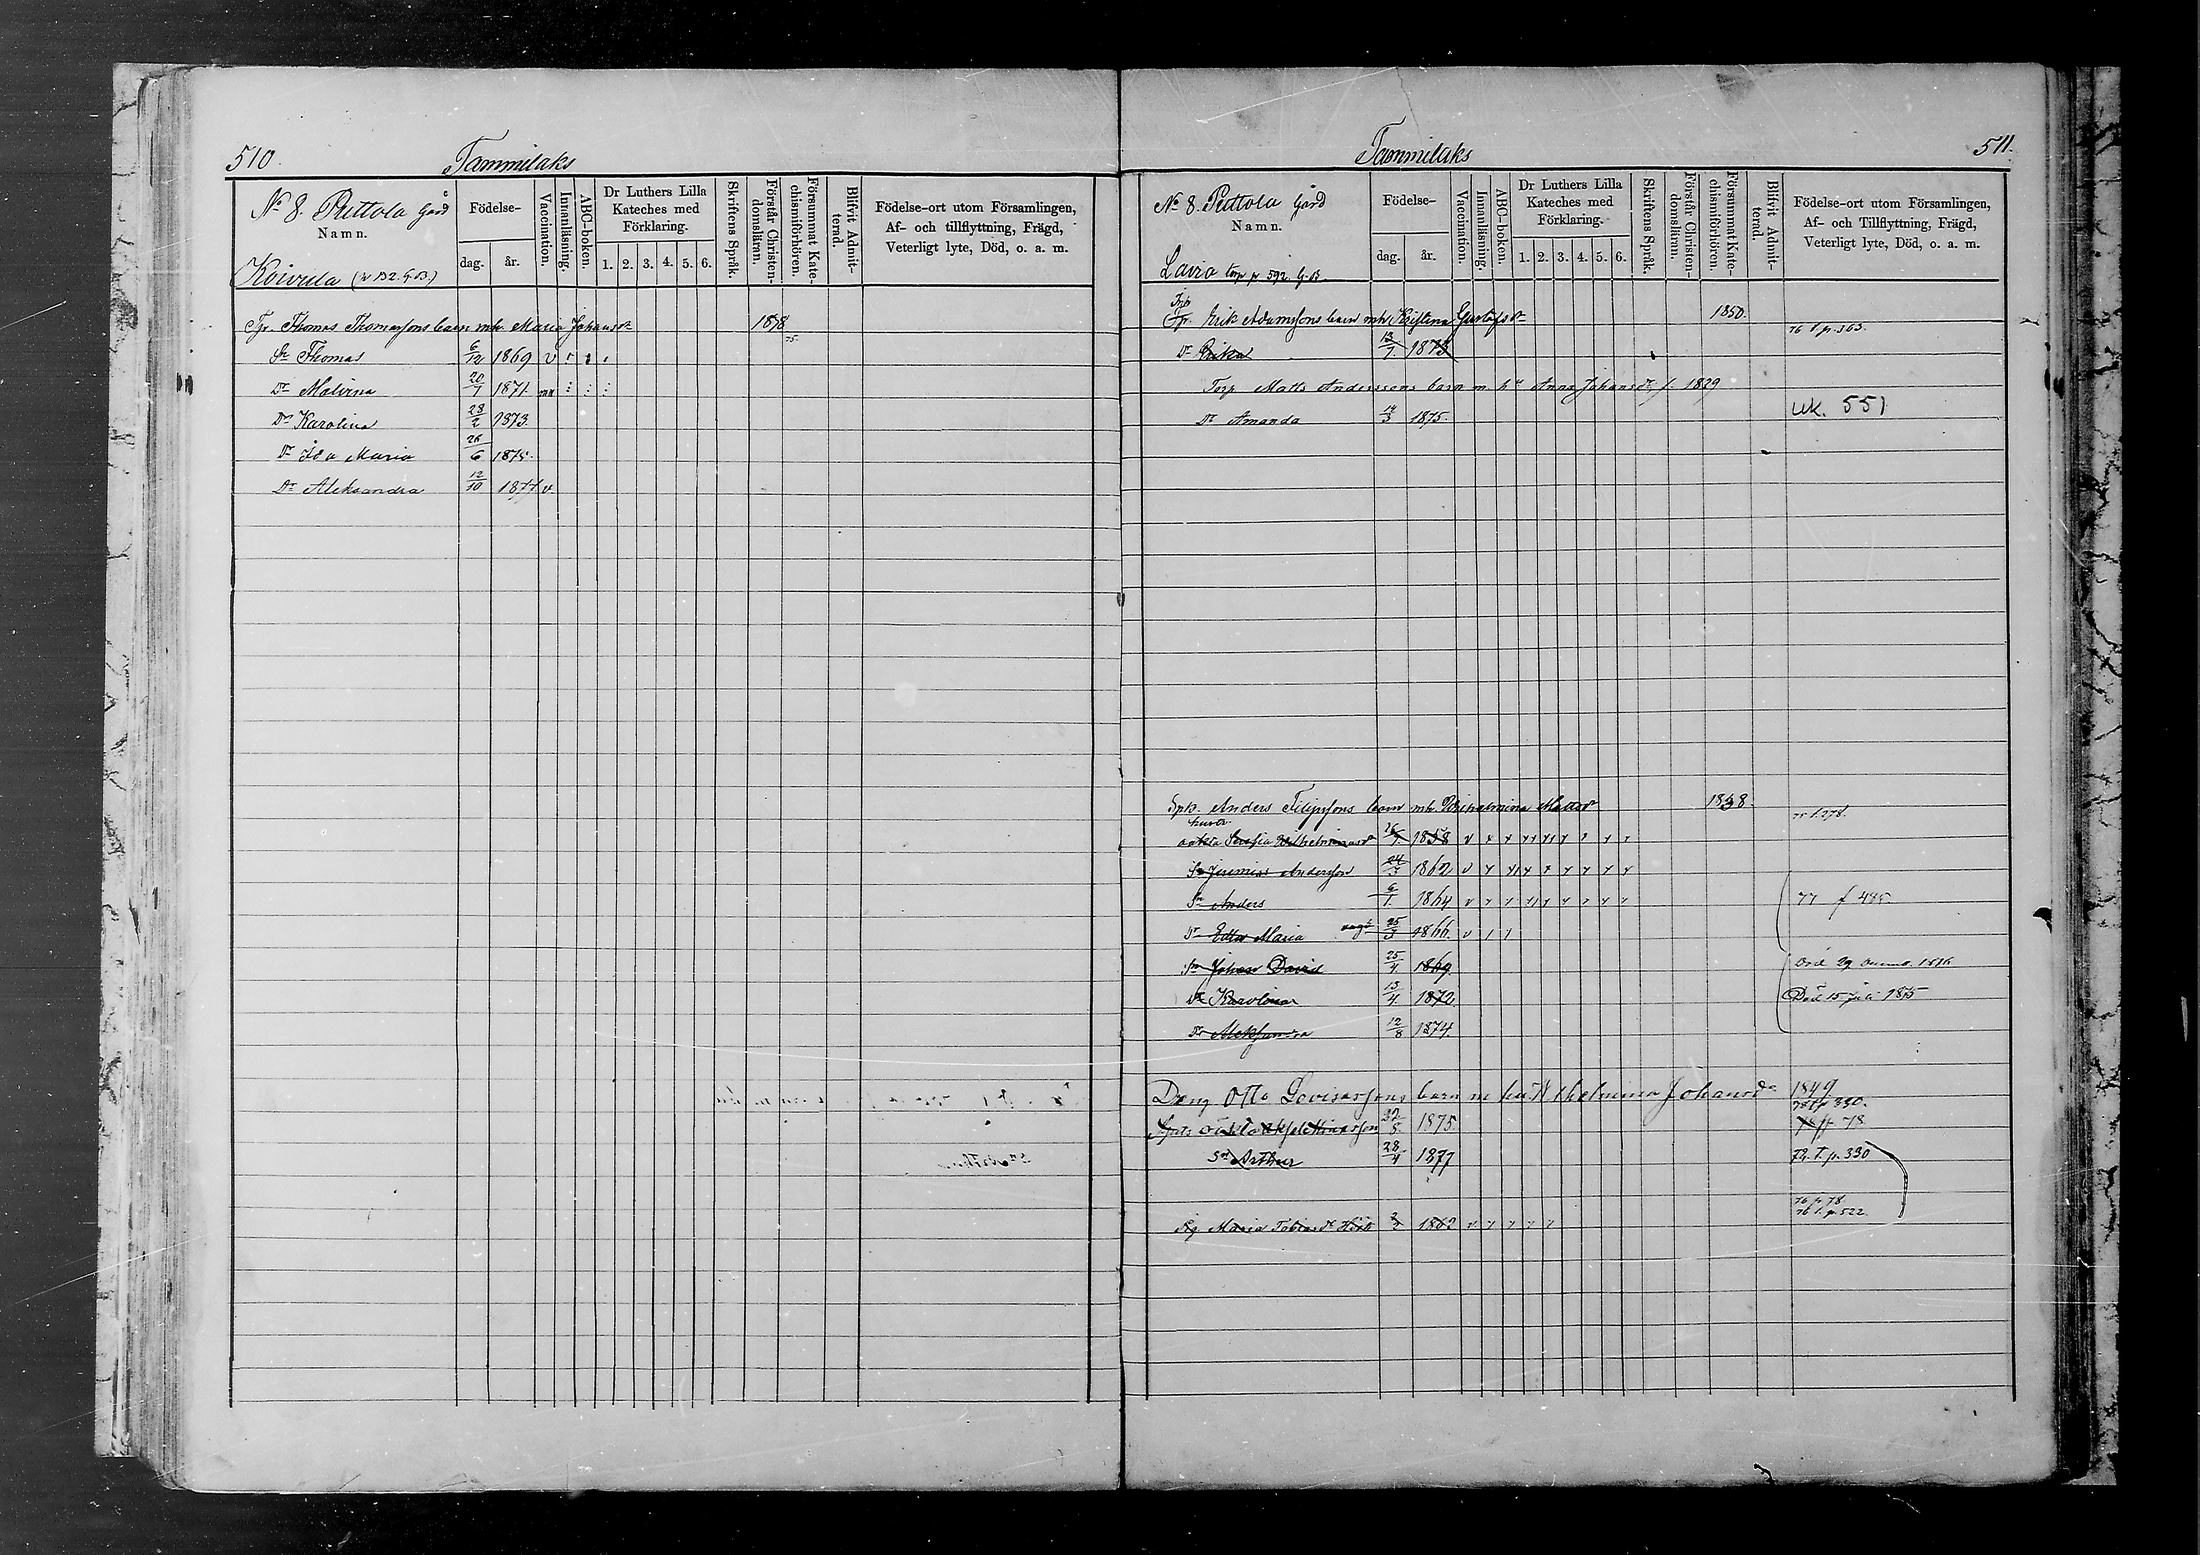 510.
Tammilaks
No 8. Puttola Gård
Namn.
Koivula
Födelse-
dag.
år.
Vaccination.
Innanläsning.
ABC-boken.
Dr Luthers Lilla
Kateches med
Förklaring.
1. 2. 3. 4. 5. 6.
Skriftens Språk.
Förstår Christen-
domsläran.
Försummat Kate-
chismiförhören.
Blifvit Admit-
terad.
Födelse-ort utom Församlingen,
Af- och tillflyttning, Frägd,
Veterligt lyte, Död, o. a. m.
Tpr. Thomas Thomassons barn mhu Maria Johansdr
75.
Sn Thomas 6/12 1869 v
Dr Malvina 20/7 1871
Dr Karolina 28/2 1873.
Dr Ida Maria 26/6 1875.
Dr Aleksandra 12/10 1877 v.
Tammilaks
511.
No 8. Puttola Gård
Namn.
Lairo torp p 592
Födelse-
dag.
år.
Vaccination.
Innanläsning.
ABC-boken.
Dr Luthers Lilla
Kateches med
Förklaring.
1. 2. 3. 4. 5. 6.
Skriftens Språk.
Förstår Christen-
domsläran.
Försummat Kate-
chismiförhören.
Blifvit Admit-
terad.
Födelse-ort utom Församlingen,
Af- och Tillflyttning, Frägd,
Veterligt lyte, Död, o. a. m.
Erik Adamssons barn mhu Kristina Gustafsdr 1850.
76 f. p. 363.
Dr Erika 1873
Torp Matts Anderssons barn m. hu Anna Johansdr f. 1829
uk. 551
Dr Amanda 14/3 1875.
Spk. Anders Filipssons barn mhu Wilhelmina Mattsdr 1838.
75 f. 278.
Serafia Wilhelminasdr 26/7 1858 v
Sn Jeremias Andersson 24/3 1862 v
Sn Anders 6/1 1864 v
77 f 485.
Dr Edla Maria 25/3 1866. v
Sn Johan David 25/4 1869.
Dr Karolina 13/4 1872
Död 15 juli 1875
Dr Aleksandra 12/8 1874.
Dräng Otto Lovisassons barn m hu Wilhelmina Johansdr 1849
1875
Sn Arthur 28/4 1877
78. f. p. 330
76 p 78
76 f. p. 522.
Maria Tobiasdr 1862 v